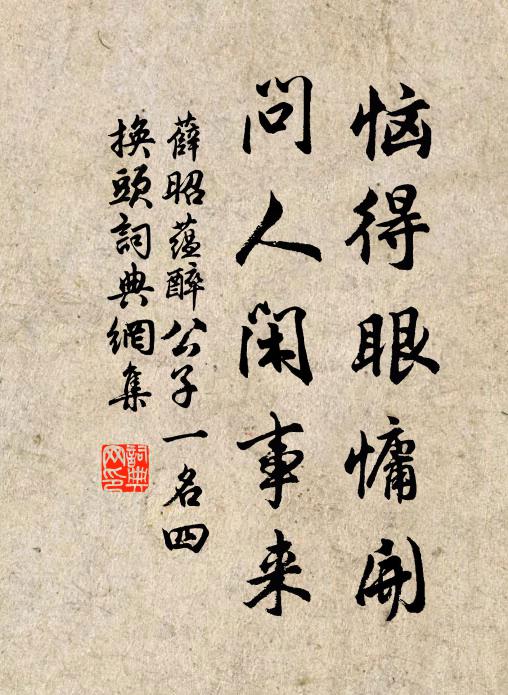 恼得眼慵开
问人闲事来
薛昭蕴醉公子一名四
换头词典網集
詞典
网印